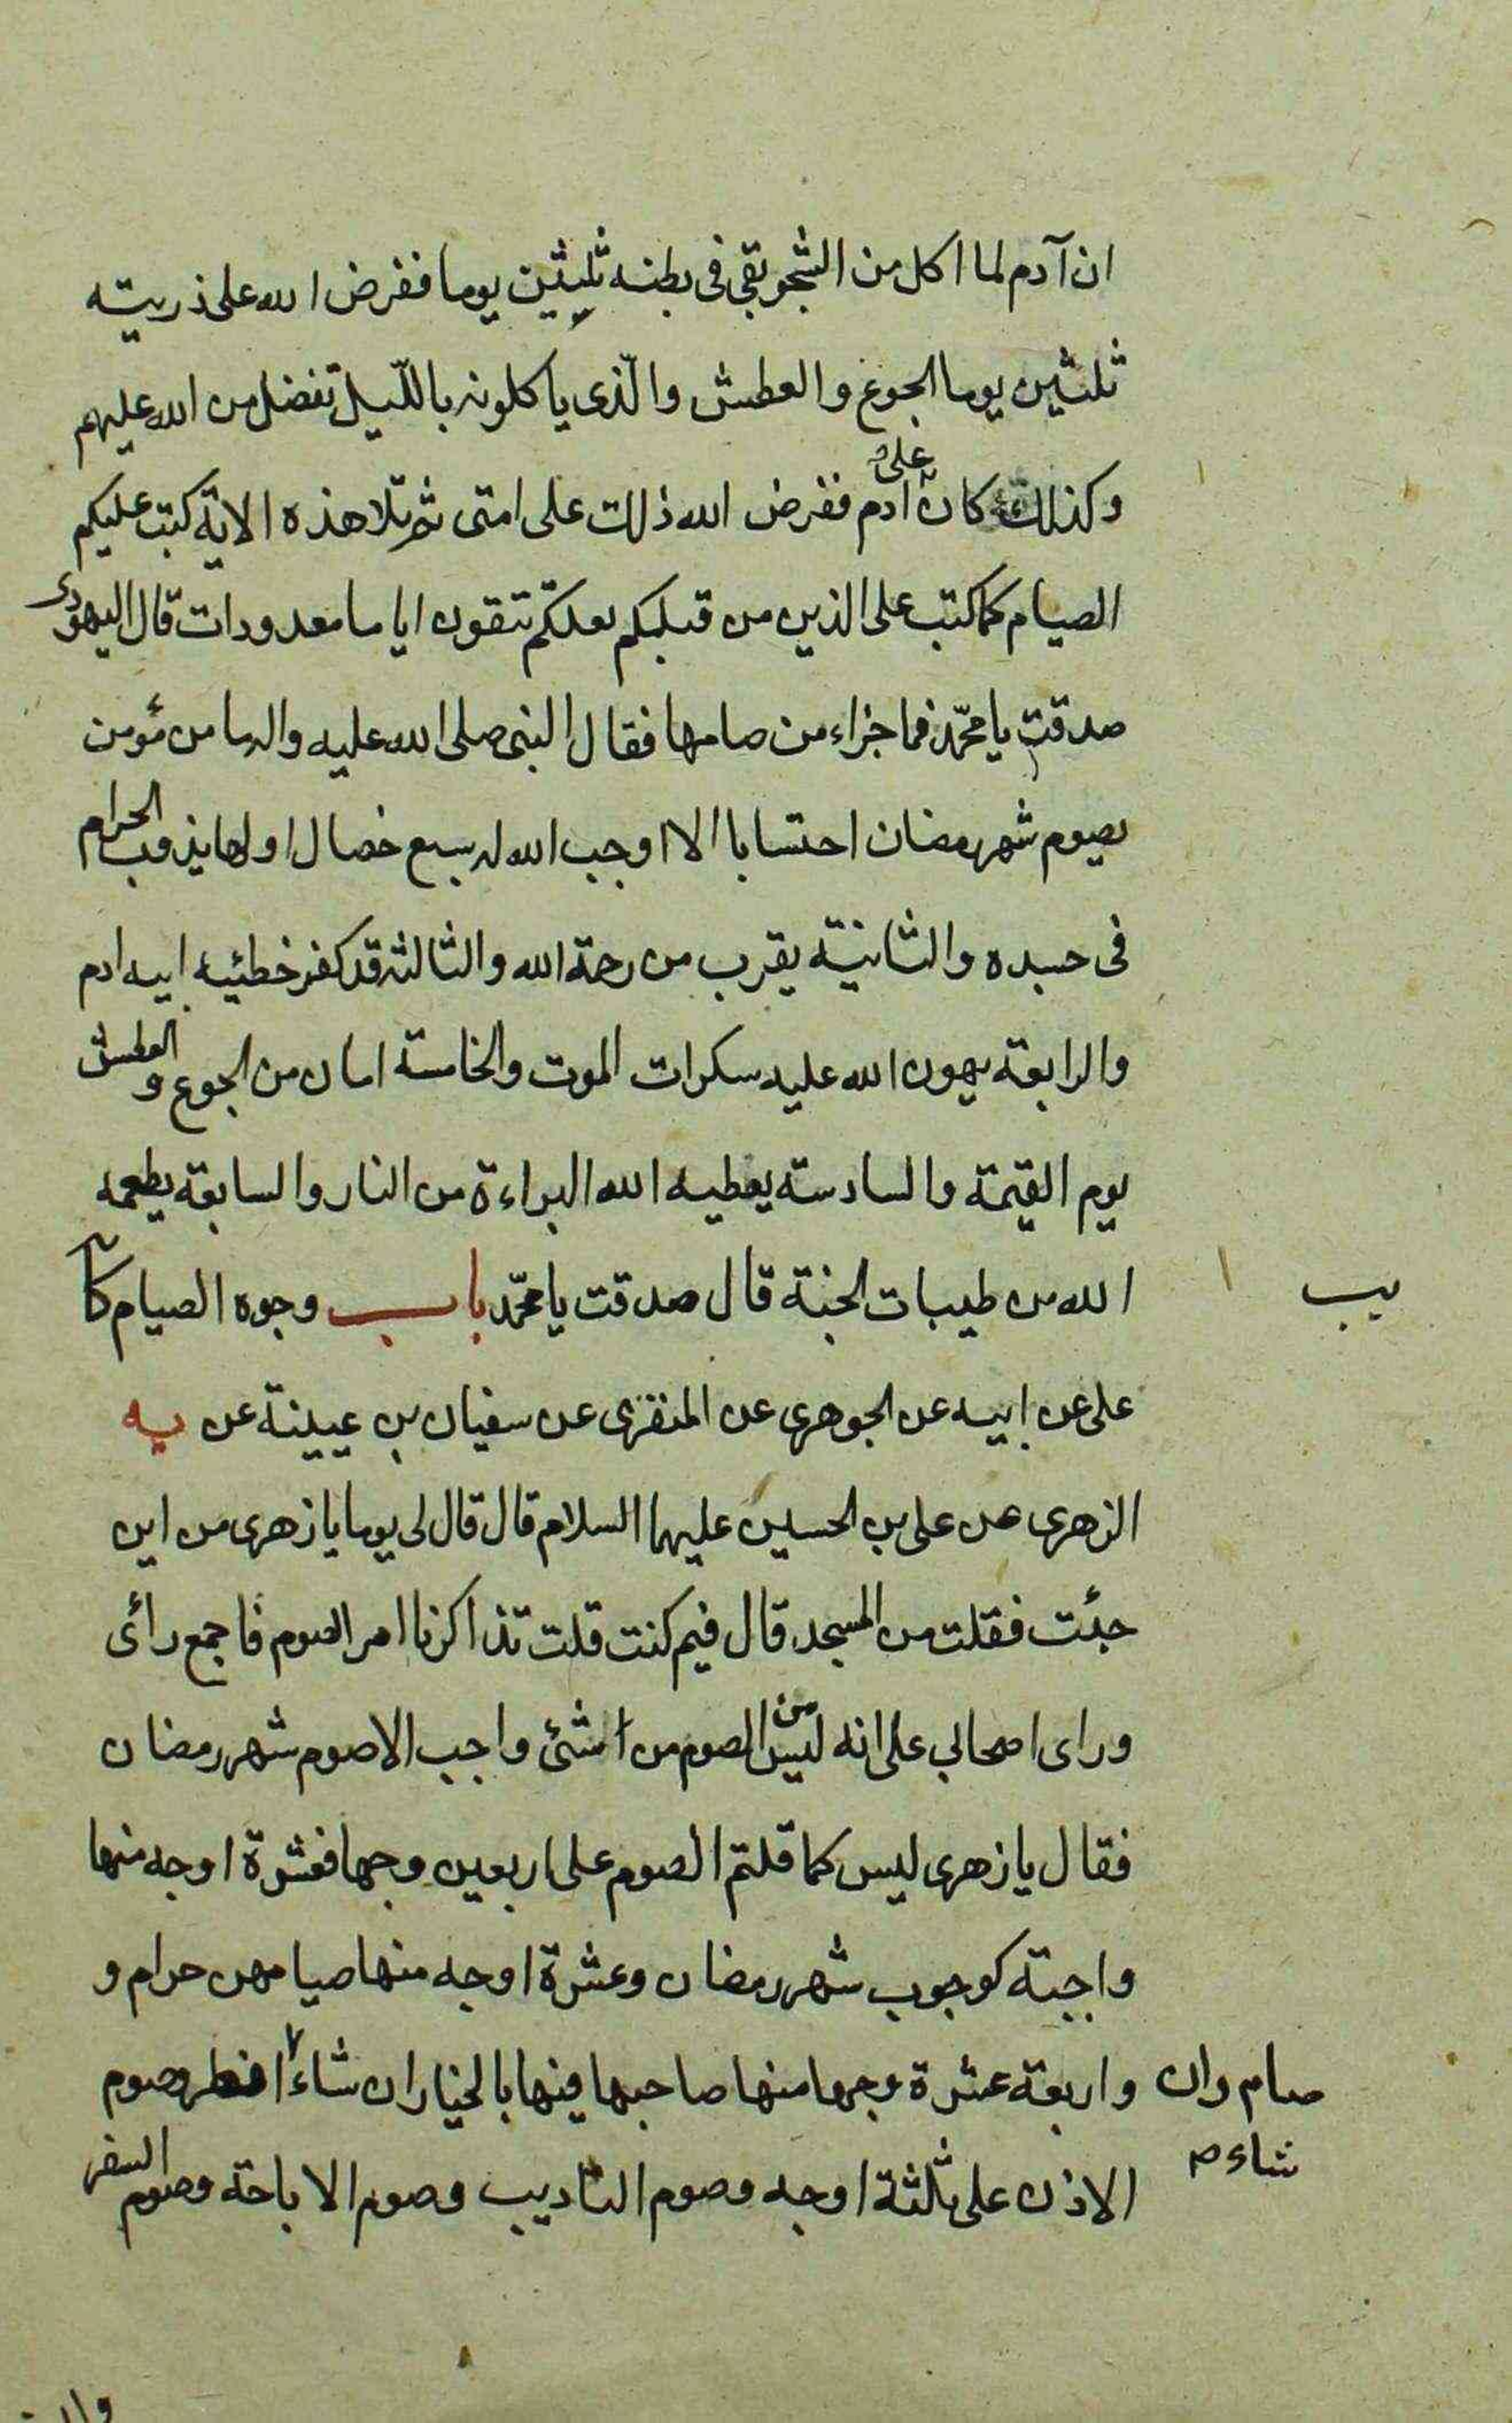 ان آدم لما اكل من الشجر بقي فى بطنه ثلثين يوما ففرض الله على ذريته
ثلثين يوما الجوع والعطش والّذى ياكلونه باللّيل تفضل من الله عليهم
وكذلك كان على ادم ففرض الله ذلك على امتى ثم تلا هذه الاية كتب عليكم
الصيام كما كتب على الذين من قبلكم لعلكم تتقون اياما معدودات قال اليهودى
صدقت يا محمّد فما جزاء من صامها فقال النبى صلى الله عليه واله ما من مؤمن
يصوم شهر رمضان احتسابا الا اوجب الله له سبع خصال اولها يذوب الحرام
فى جسده والثانية يقرب من رحمة الله والثالثه قد كفر خطيئه ابيه ادم
والرابعة يهون الله عليه سكرات الموت والخامسة امان من الجوع والعطش
يوم القيمة والسادسة يعطيه الله البراءة من النار والسابعة يطعمه
الله من طيبات الجنة قال صدقت يا محمّد باب وجوه الصيام كا
يب
على عن ابيه عن الجوهرى عن المنقرى عن سفيان بن عيينة عن يه
الزهرى عن على بن الحسين عليهما السلام قال قال لى يوما يا زهرى من اين
جئت فقلت من المسجد قال فيم كنت قلت تذاكرنا امر الصوم فاجمع رائى
وراى اصحابي على انه ليس من الصوم من شئ واجب الا صوم شهر رمضان
فقال يا زهرى ليس كما قلتم الصوم على اربعين وجها فعشرة اوجه منها
واجبة كوجوب شهر رمضان وعشرة اوجه منها صيامهن حرام و
واربعة عشرة وجها منها صاحبها فيها بالخيار ان شاء افطر وصوم
صام وان
شاء ص
الاذن على ثلثة اوجه وصوم التاديب وصوم الاباحة وصوم السفر